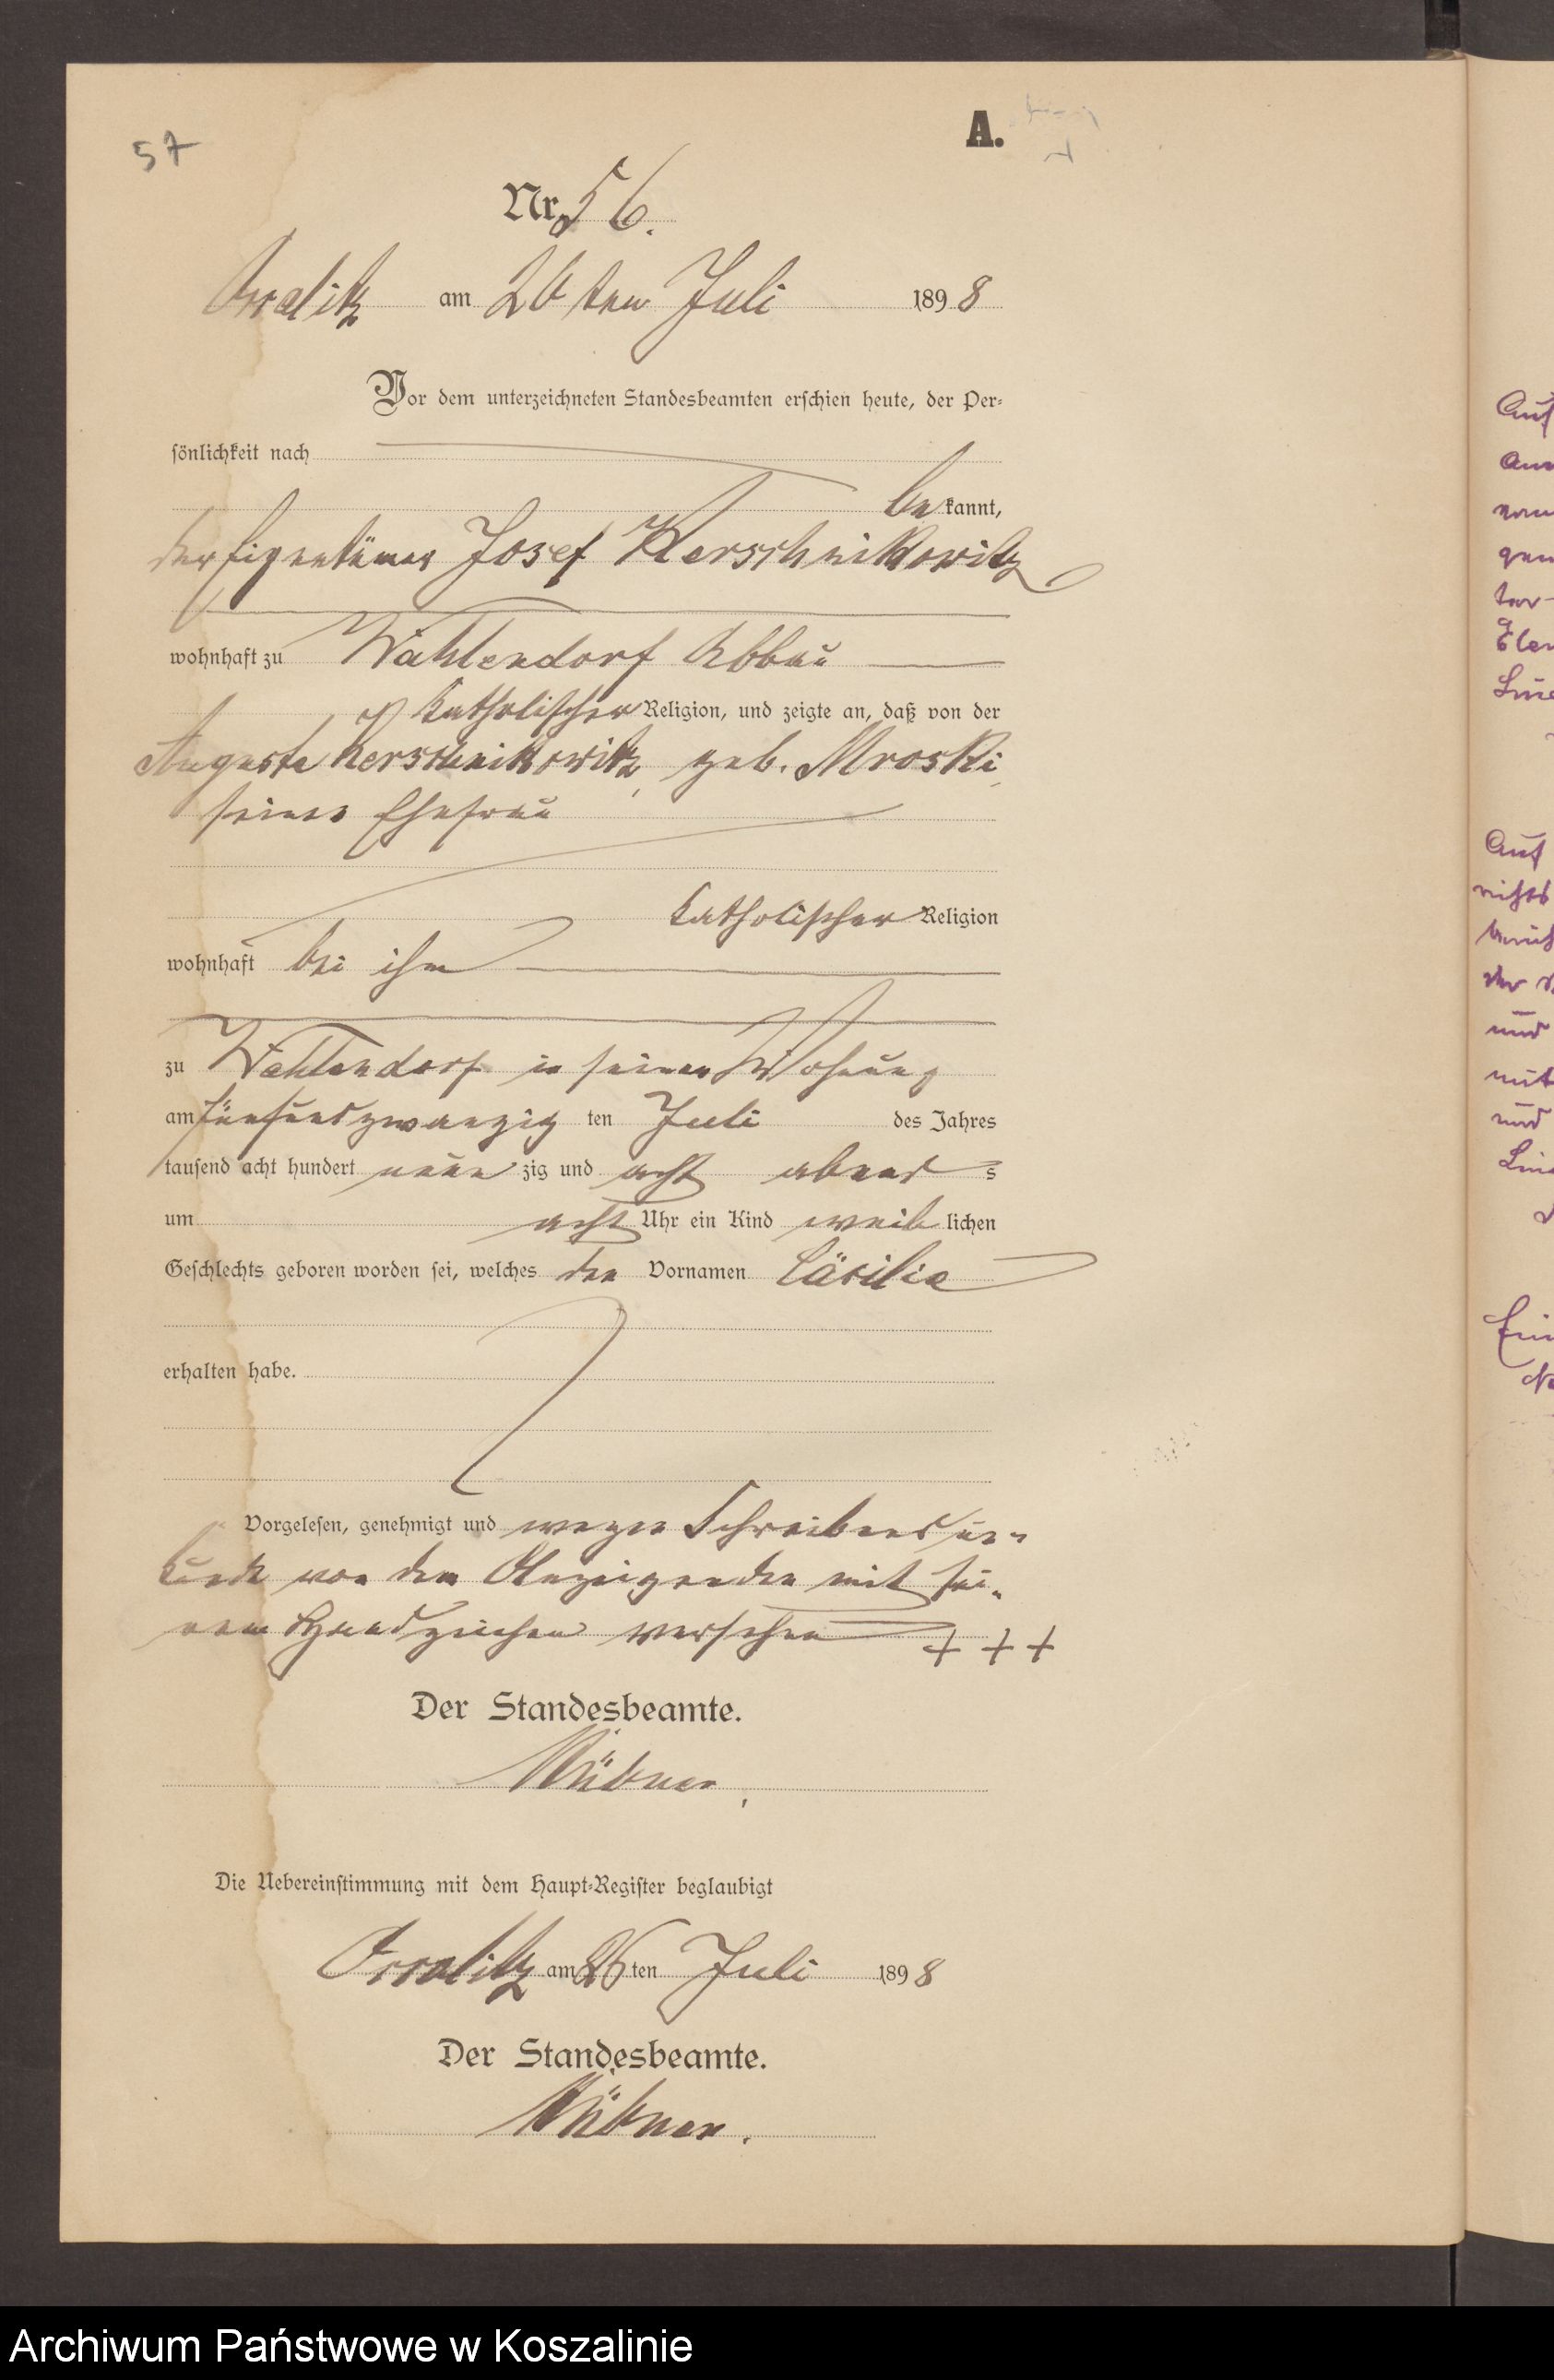 57
A.
Nr. 56.
am 26 ten Juli 1898
Vor dem unterzeichneten Standesbeamten erschien heute, der Per-
sönlichkeit nach
bekannt,
der Eigentümer Josef Kerschnikowitz
wohnhaft zu Wahlendorf Abbau
katholischer Religion, und zeigte an, daß von der
Auguste Kerschnikowitz, geb. Mroski,
seiner Ehefrau
katholischer Religion
wohnhaft bei ihm
zu Wahlendorf in seiner Wohnung
am fünfundzwanzig ten Juli des Jahres
tausend acht hundert neunzig und acht abends
um acht Uhr ein Kind weiblichen
Geschlechts geboren worden sei, welches den Vornamen Cäcilie
erhalten habe.
Vorgelesen, genehmigt und wegen Schreibensun-
kunde von dem Anzeigenden mit sei-
nem Handzeichen versehen + + +
Der Standesbeamte.
Die Uebereinstimmung mit dem Haupt-Register beglaubigt
am 26 ten Juli 1898
Der Standesbeamte.
Auf
und
mit
und
Archiwum Państwowe w Koszalinie